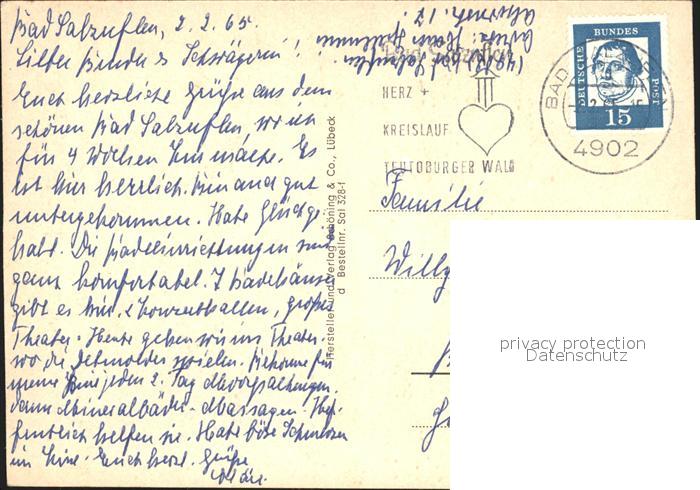 Bad Salzuflen, 2. 2. 65.
Lieber Bruder u. Schwägerin!
Euch herzliche Grüße aus dem
schönen Bad Salzuflen, wo ich
für 4 Wochen Kur mache. Es
ist hier herrlich. Bin auch gut
untergekommen. Habe Glück ge-
habt. Die Badeeinrichtungen sind
ganz komfortabel. 7 Badehäuser
gibt es hier, 2 Konzerthallen, großes
Theater. Heute gehen wir ins Theater.
wo die Detmolder spielen. Bekomme für
meine Knie jeden 2. Tag
dann Mineralbäder - Massagen. Hof-
fentlich helfen sie. Habe böse Schmerzen
im Knie. Euch herzl. Grüße
Hersteller und Verlag Schöning & Co., Lübeck
d Bestellnr. Sal 328-f
HERZ +
KREISLAUF
TEUTOBURGER WALD
DEUTSCHE BUNDES POST
15
BAD SALZUFLEN
4902
Familie
Willy
privacy protection
Datenschutz